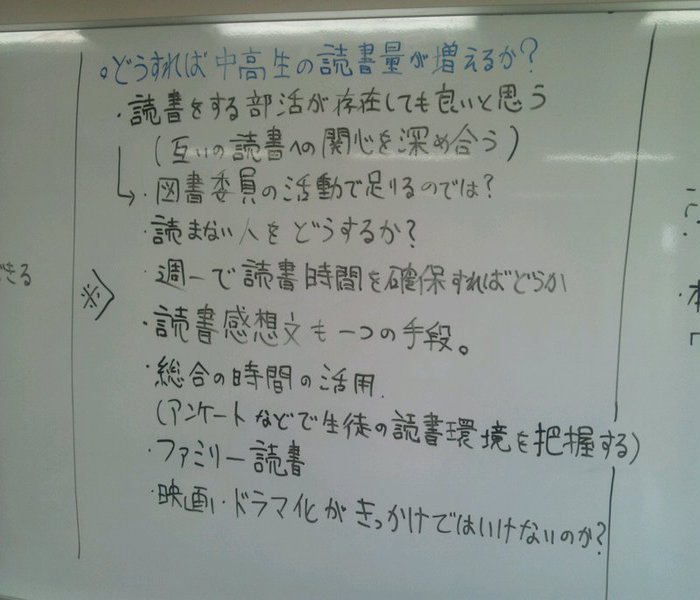 。どうすれば中高生の読書量が増えるか?
・読書をする部活が存在しても良いと思う
(互いの読書への関心を深め合う)
↳・図書委員の活動で足りるのでは?
・読まない人をどうするか?
※〉・週一で読書時間を確保すればどうか
・読書感想文も一つの手段。
・総合の時間の活用.
(アンケートなどで生徒の読書環境を把握する)
・ファミリー読書
・映画・ドラマ化がきっかけではいけないのか?
きる